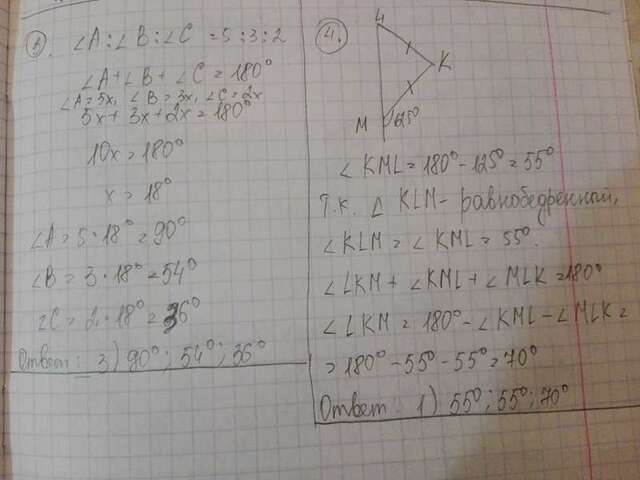 3). ∠A:∠B:∠C = 5:3:2
∠A+∠B+∠C = 180°
∠A=5x, ∠B=3x, ∠C=2x
5x+3x+2x=180°
10x=180°
x=18°
∠A=5·18°=90°
∠B=3·18°=54°
∠C=2·18°=36°
Ответ: 3) 90°; 54°; 36°
4.
L
K
M
125°
∠KML=180°-125°=55°
Т.к. Δ KLM- равнобедренный,
∠KLM=∠KML=55°.
∠LKM+∠KML+∠MLK=180°
∠LKM=180°-∠KML-∠MLK=
=180°-55°-55°=70°
Ответ: 1) 55°; 55°; 70°